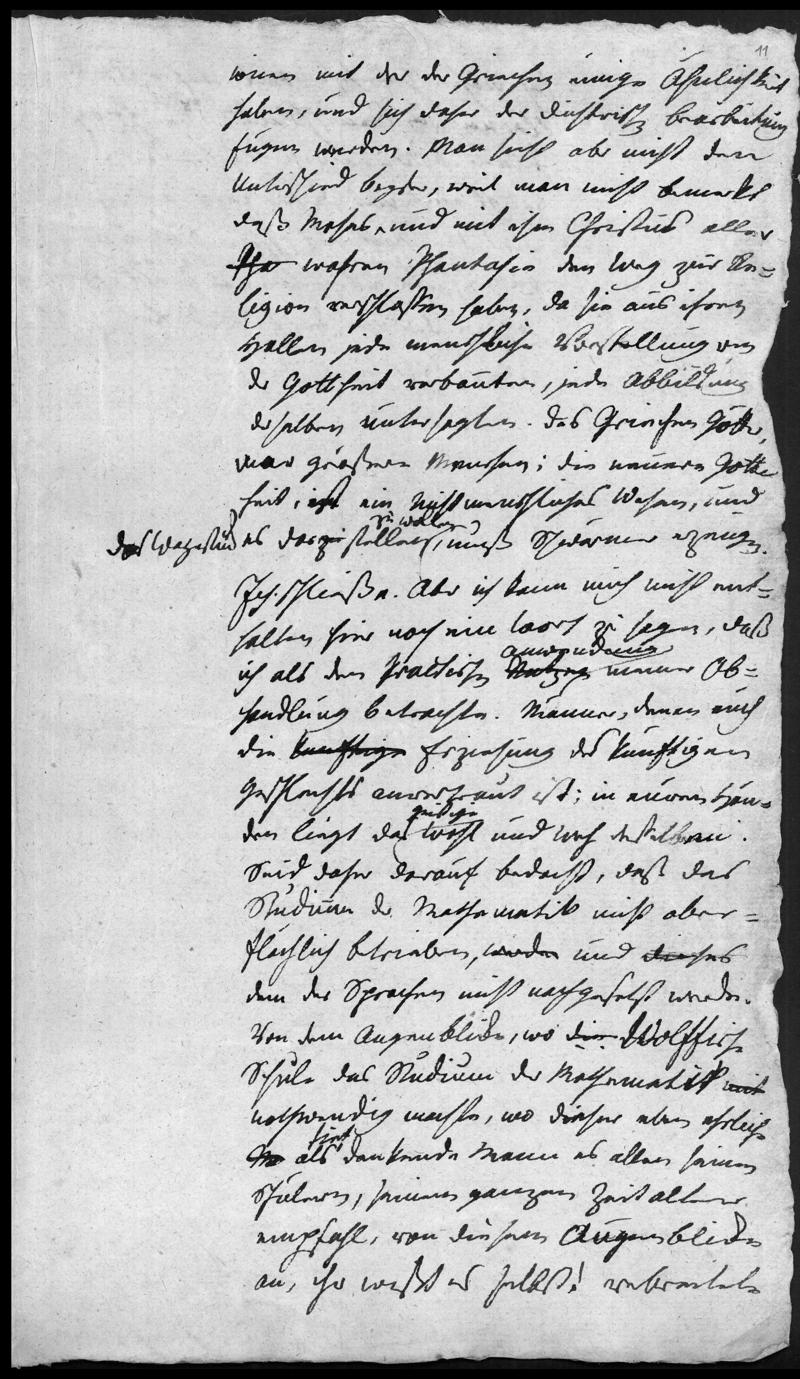 11
mit der der Griechen einige Ähnlichkeit
haben, und sich daher der dichterisch Bearbeitung
fügen werden. Man sieht aber nicht den
Unterschied beyder, weil man nicht bemerkt
daß Moses, und mit ihm Christus aller
wahren Phantasie den Weg zur Re=
ligion verschlossen haben, da sie aus ihren
jede menschliche Vorstellung von
der Gottheit verbannten, jede Abbildung
derselben untersagten. Das Griechen Götter,
war größere Menschen; die neuere Gott
heit, ist ein nichtmenschliches Wesen, und
zu wollen
das Wagestück es darzustellen, muß Schwärmer erzeugen.
Ich schließe. Aber ich kann mich nicht ent=
halten hier noch ein Wort zu sagen, daß
Anwendung
ich als den practischen Nutzen meiner Ab=
handlung betrachte. Männer, denen euch
die künftige Erziehung des künftigen
Geschlechts anvertraut ist; in euren Hän=
geistige
den liegt das Wohl und Weh desselben.
Seid daher darauf bedacht, daß das
Studium der Mathematik nicht ober=
flächlich betrieben, werden und dieses
dem der Sprachen nicht nachgesetzt werde.
Von dem Augenblick, wo die Wolffische
Schule das Studium der Mathematik mit
nothwendig machte, wo dieser eben ehrlich
als denkende Mann es allen seinen
Schülern, seinem ganzen Zeitalter
empfahl, von diesem Augenblick
an, ihr wißt es selbst! verbreitete